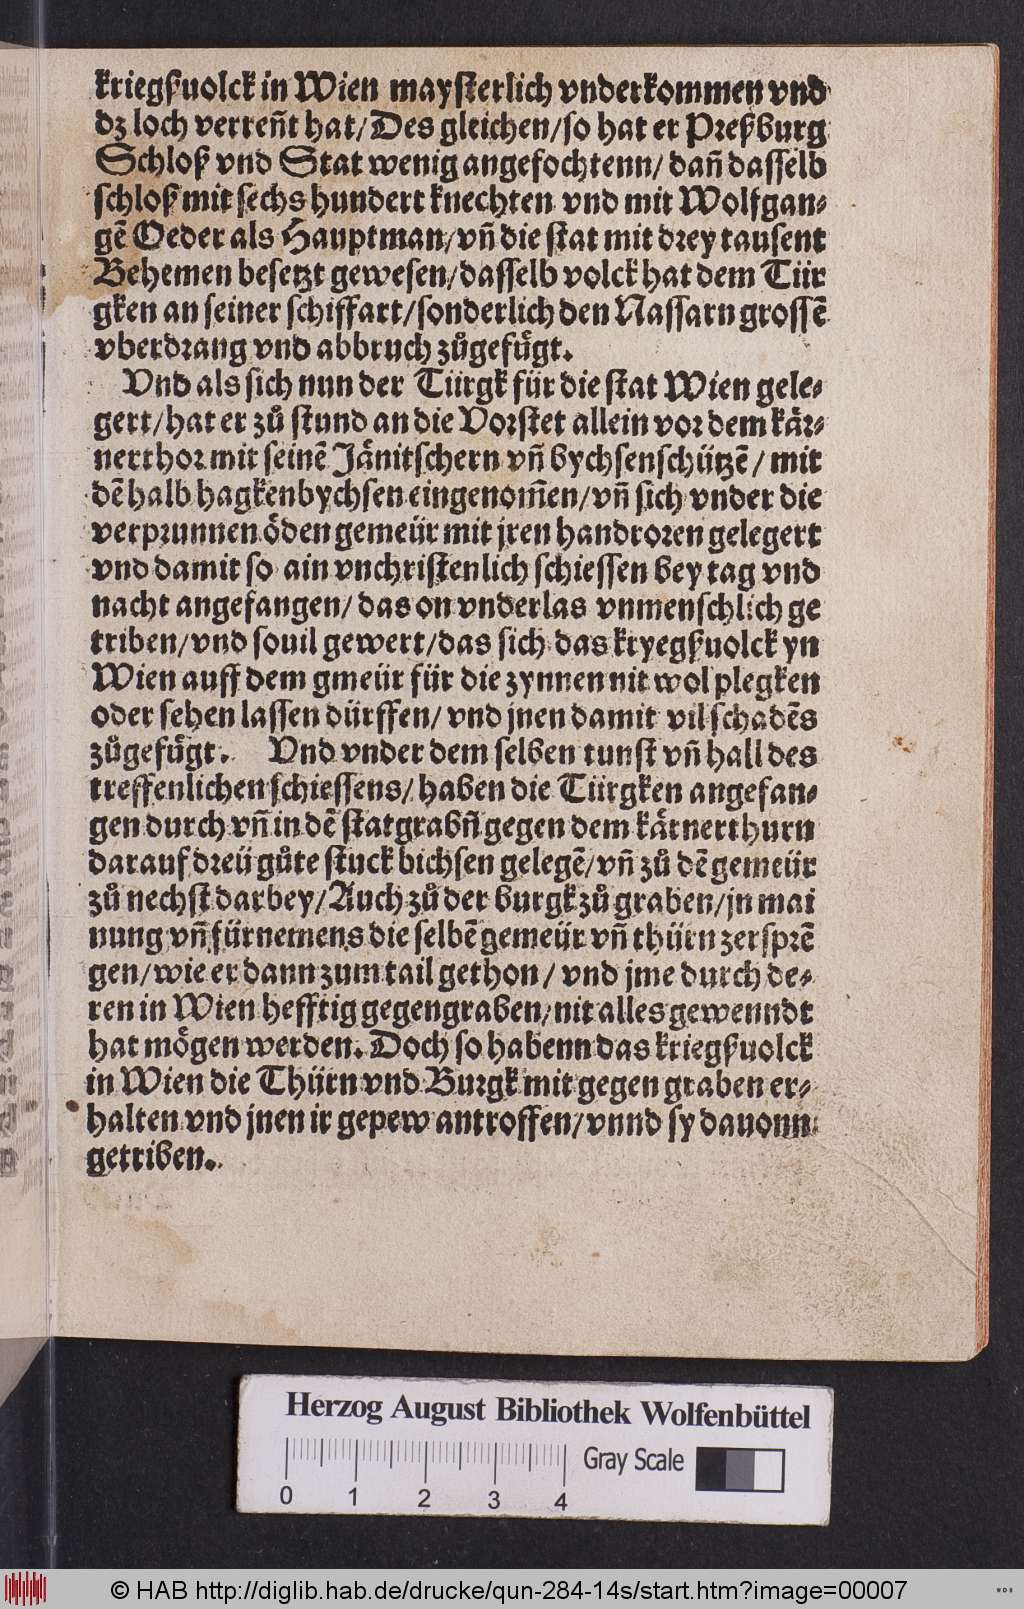 kriegßuolck in Wien maysterlich vnderkommen vnd
dz loch verreñt hat/ Des gleichen/ so hat er Preßburg
Schloß vnd Stat wenig angefochtenn/ dañ dasselb
schloß mit sechs hundert knechten vnd mit Wolfgan⸗
gẽ Oeder als Hauptman/ vñ die stat mit drey tausent
Behemen besetzt gewesen/ dasselb volck hat dem Tür
gken an seiner schiffart/ sonderlich den Nassarn grossẽ
vberdrang vnd abbruch zůgefügt.
Vnd als sich nun der Türgk für die stat Wien gele⸗
gert/ hat er zů stund an die Vorstet allein vor dem kär⸗
nerthor mit seinẽ Jänitschern vñ bychsenschützẽ/ mit
dẽ halb hagkenbychsen eingenom̃en/ vñ sich vnder die
verprunnen öden gemeür mit jren handroren gelegert
vnd damit so ain vnchristenlich schiessen bey tag vnd
nacht angefangen/ das on vnderlas vnmenschlich ge
triben/ vnd souil gewert/ das sich das kryegßuolck yn
Wien auff dem gmeür für die zynnen nit wol plegken
oder sehen lassen dürffen/ vnd jnen damit vil schadẽs
zůgefügt. Vnd vnder dem selben tunst vñ hall des
treffenlichen schiessens/ haben die Türgken angefan⸗
gen durch vñ in dẽ statgrabñ gegen dem kärnerthurn
darauf dreü gůte stuck bichsen gelegẽ/ vñ zů dẽ gemeür
zů nechst darbey/ Auch zů der burgk zů graben/ jn mai
nung vñ fürnemens die selbẽ gemeür vñ thürn zersprẽ
gen/ wie er dann zum tail gethon/ vnd jme durch de⸗
ren in Wien hefftig gegengraben/ nit alles gewenndt
hat mögen werden. Doch so habenn das kriegßuolck
in Wien die Thürn vnd Burgk mit gegen graben er⸗
halten vnd jnen ir gepew antroffen/ vnnd sy dauonn
getriben.
Herzog August Bibliothek Wolfenbüttel
Gray Scale
0 1 2 3 4
© HAB http://diglib.hab.de/drucke/qun-284-14s/start.htm?image=00007